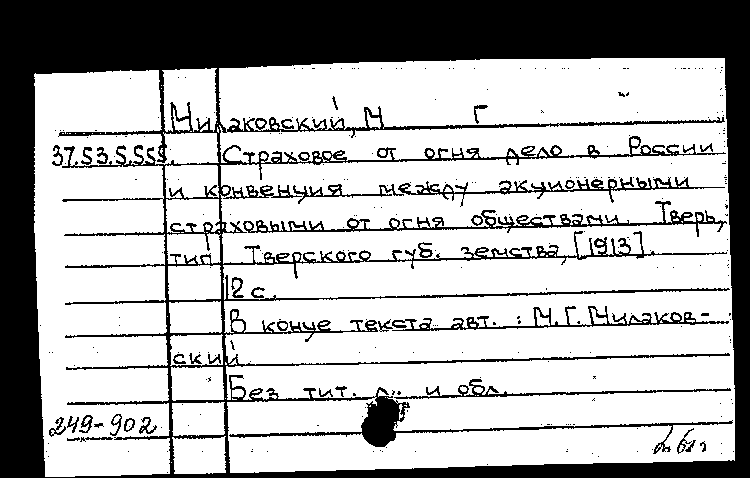 Милаковский, М Г
37.53.5.555. Страховое от огня дело в России
и конвенция между акционерными
страховыми от огня обществами. Тверь,
тип Тверского губ. земства, [1913].
12 с.
В конце текста авт. : М.Г. Милаков-
ский
Без тит. л. и обл.
249-902